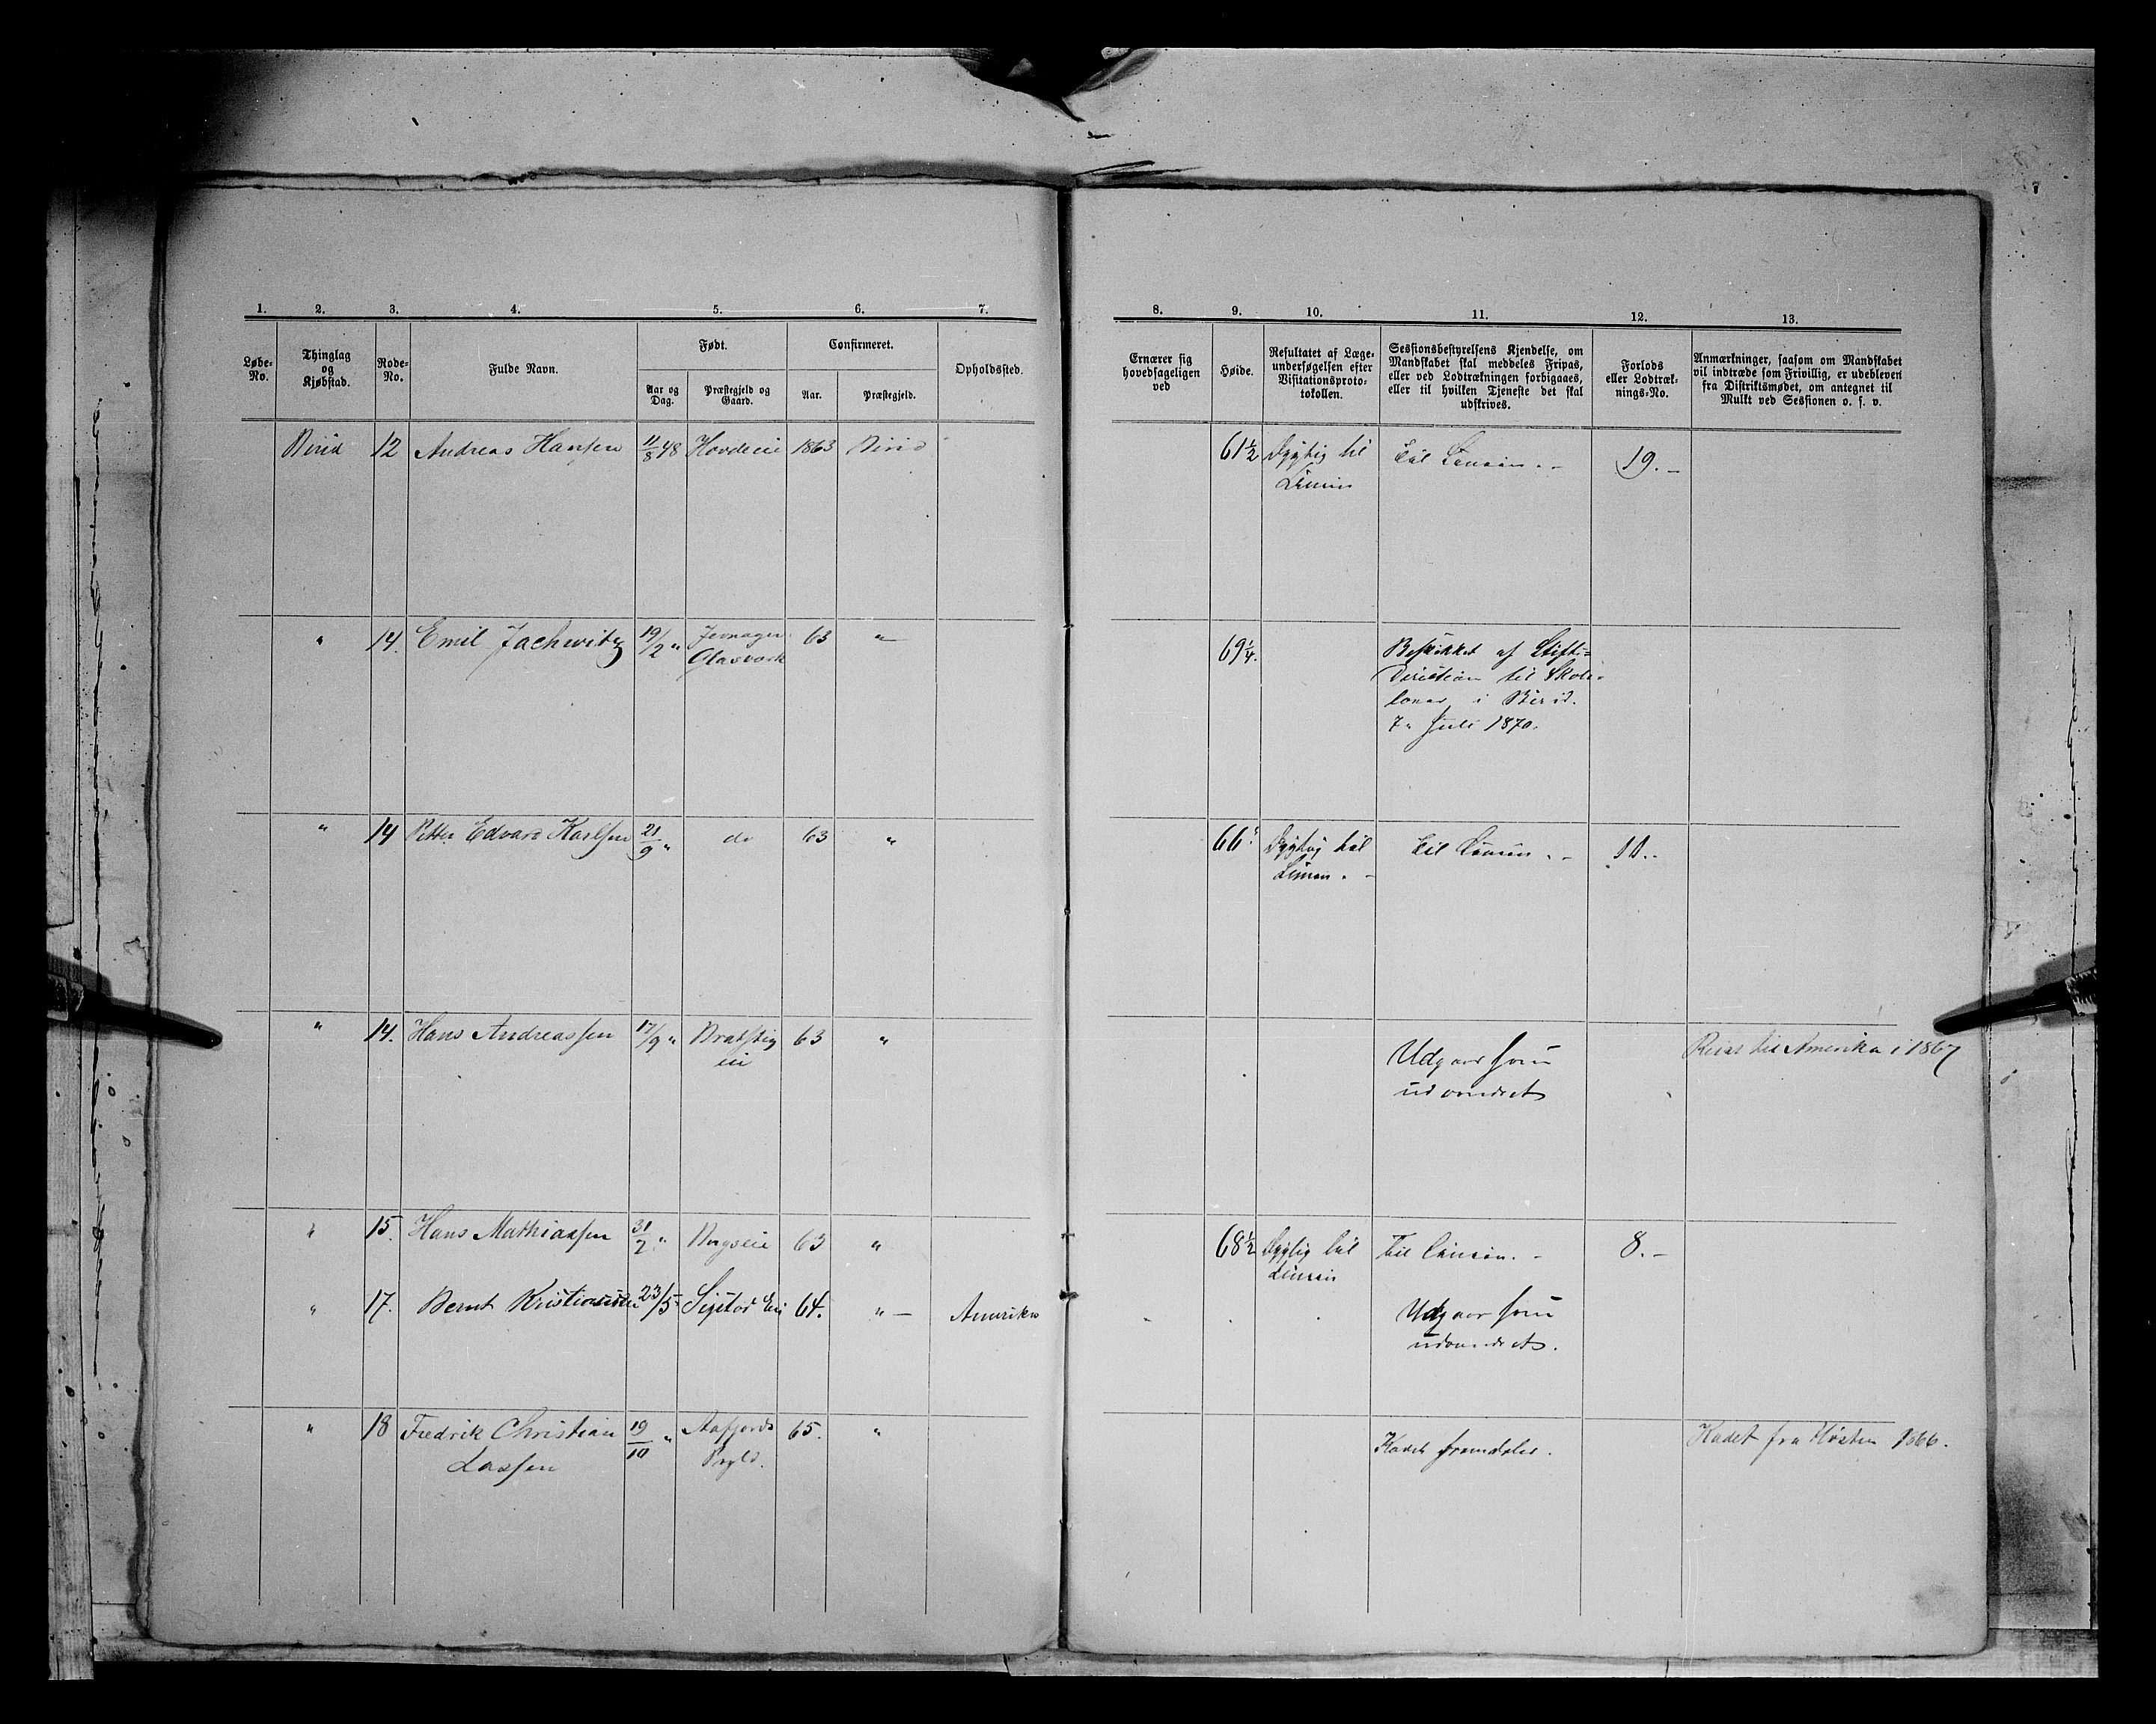 7
1. 2. 3. 4. 5. 6. 7.
Løbe-No. Thinglag og Kjøbstad. Rode-No. Fulde Navn. Født. Confirmeret. Opholdssted.
Aar og Dag. Præstegjeld og Gaard. Aar. Præstegjeld.
8. 9. 10. 11. 12. 13.
Ernærer sig hovedsageligen ved
Høide.
Resultatet af Læge-undersøgelsen efter Visitationsproto-tokollen.
Sessionsbestyrelsens Kjendelse, om Mandskabet skal meddeles Fripas, eller ved Lodtrækningen forbigaaes, eller til hvilken Tjeneste det skal udskrives.
Forlods eller Lodtræk-nings-No.
Anmærkninger, saasom om Mandskabet vil indtræde som Frivillig, er udebleven fra Distriktsmødet, om antegnet til Mulkt ved Sessionen o. s. v.
Birid 12 Andreas Hanssen 11/8 48 Hovdeeie 1863 Birid 61½ Dygtig til Linien Til Linien. - 19. -
" 14. Emil Jachwitz 19/2 " Jevnager Glasværk 63 " 69¼. Beskikket af Stifts-Direction til Skole- i Birid. 7. Juli 1870.
" 14 Petter Edvard Karlsen 21/9 " do 63 " 66. Dygtig til Linien. - Til Linien. - 11. -
" 14. Hans Andreassen 17/9 " eie 63 " Udgaar som udvandret Reist til Amerika i 1867
" 15. Hans Mathiassen 31/7 " 63 " 68½ Dygtig til Linien Til Linien. - 8. -
" 17. Bernt Kristiansen 23/5 " Eie 64. " Amerika Udgaar som udvandret.
" 18 Fredrik Christian Lassen 19/10 " Aafjords Prgld. 65. " Kadet fremdeles. Kadet fra Høsten 1866.